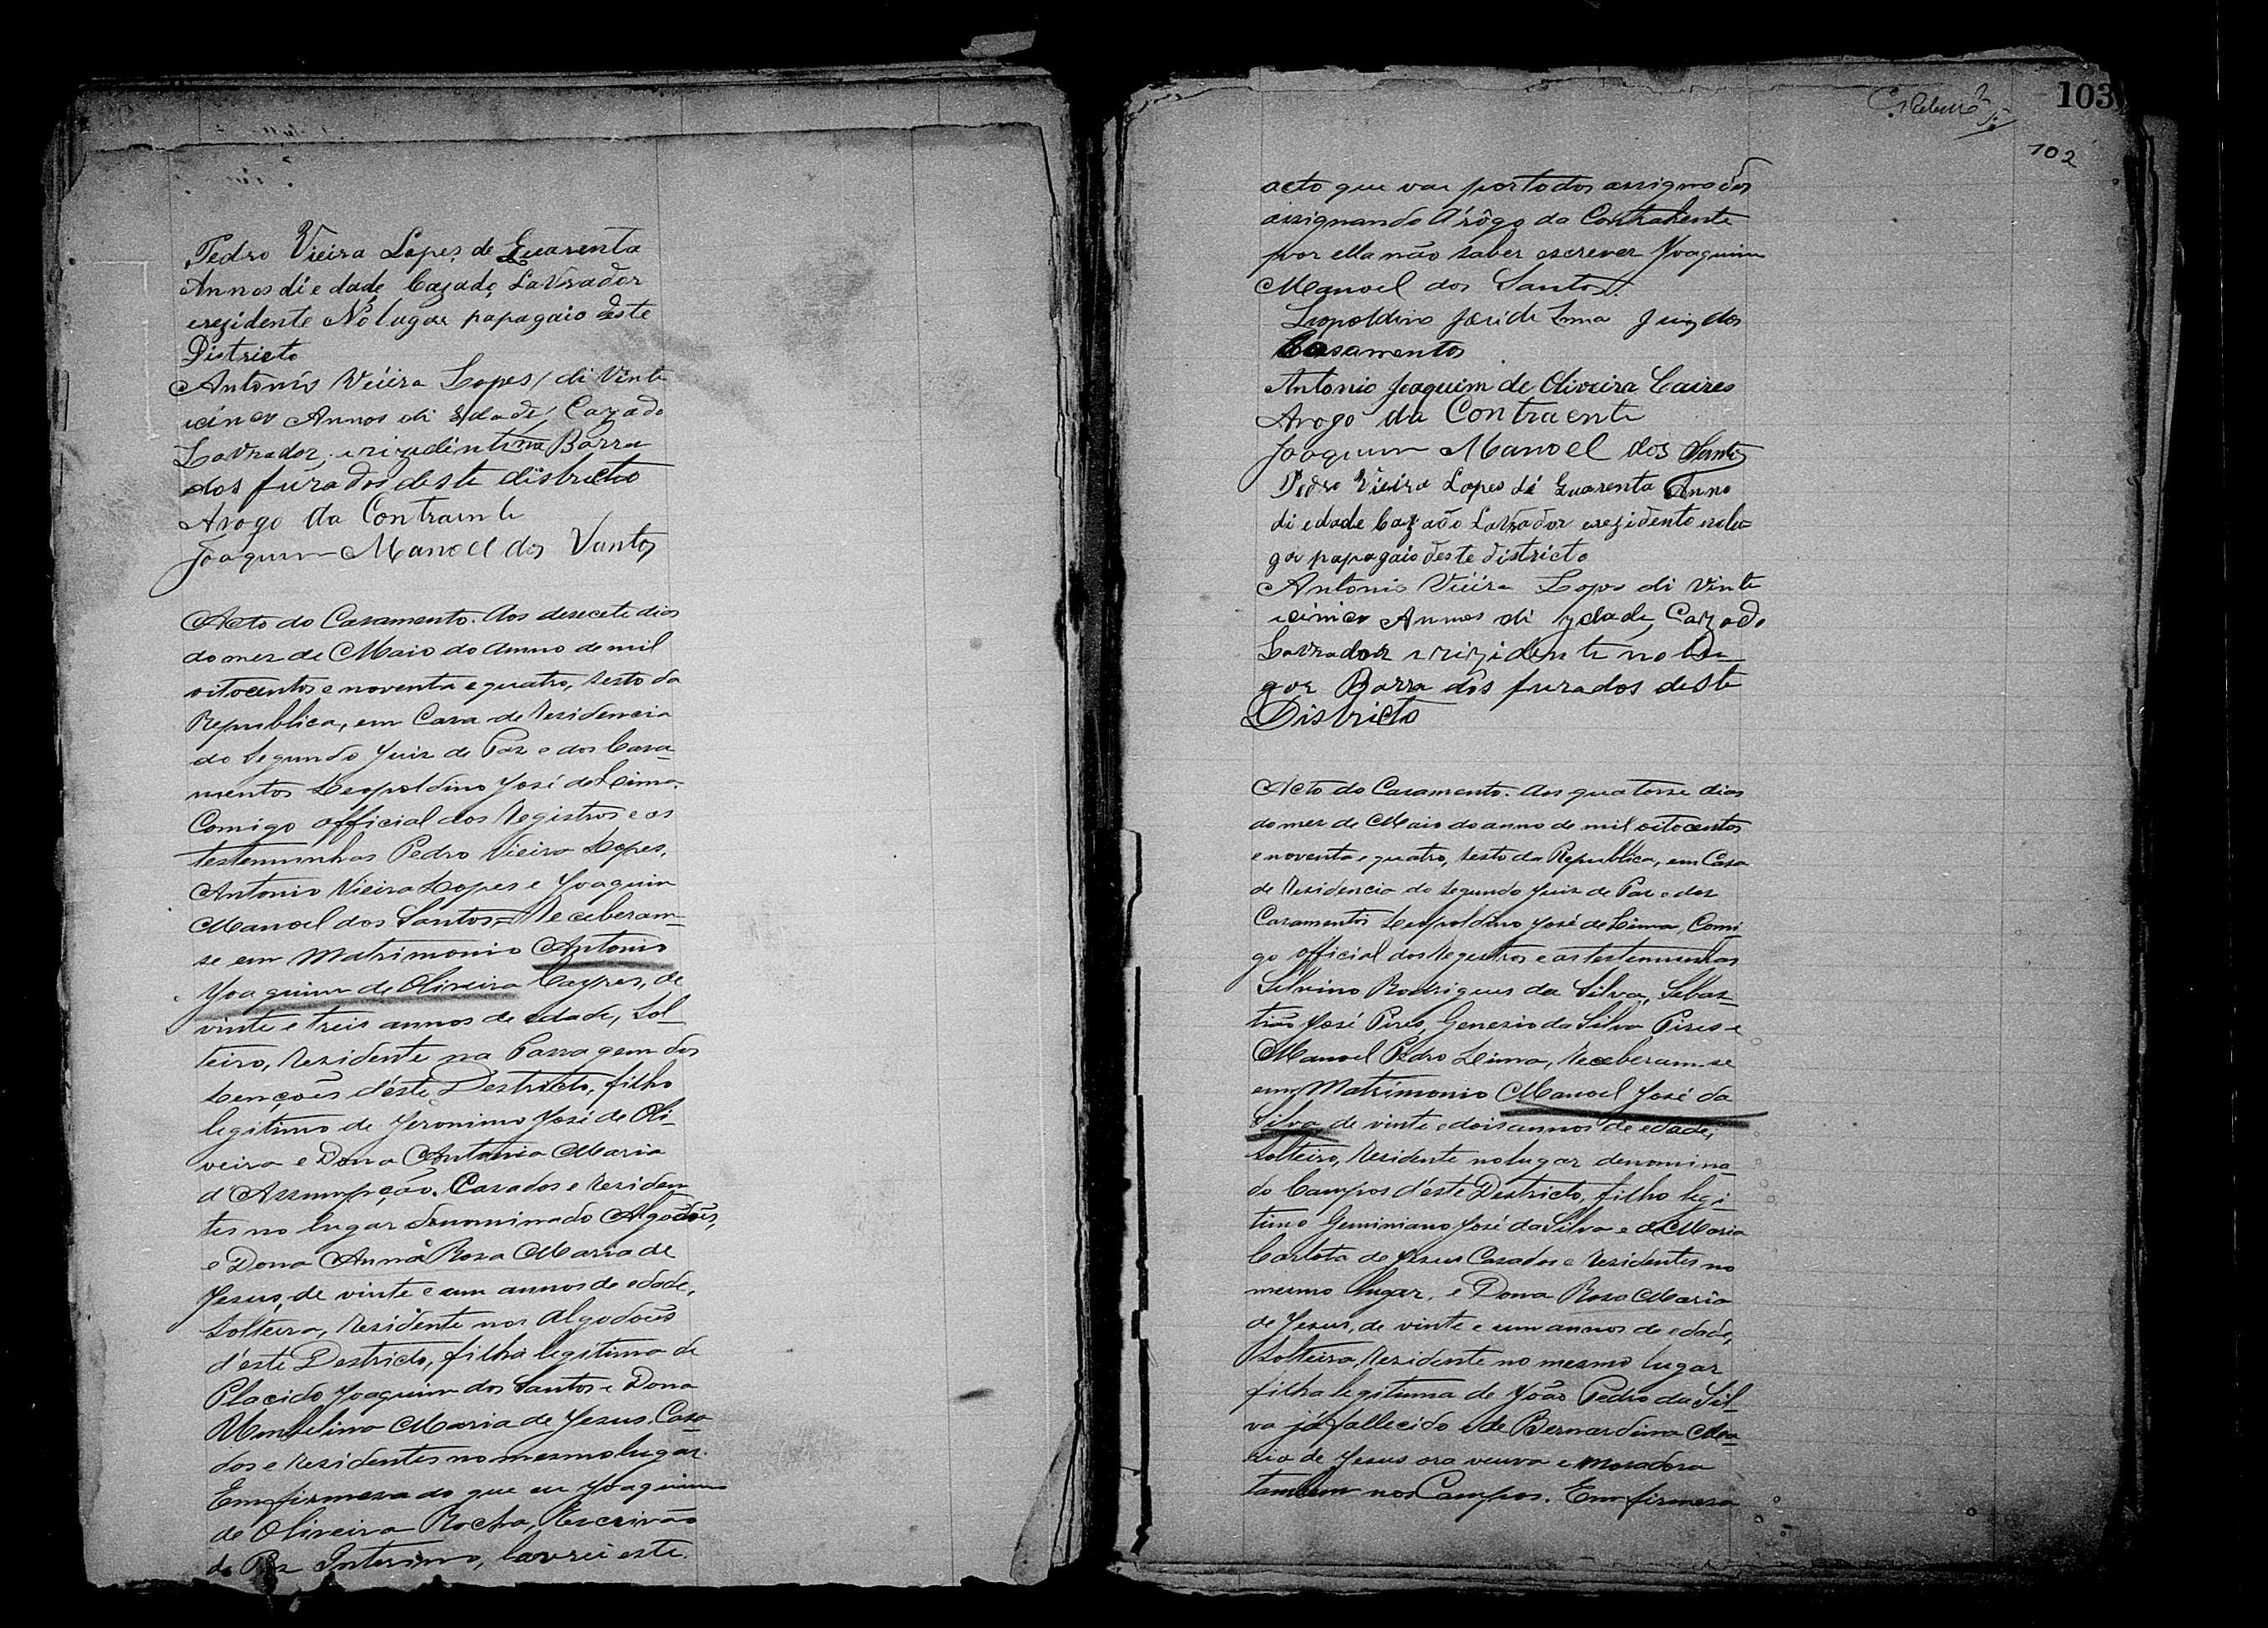 Pedro Vieira Lopes de Quarenta
Annos di edade Cazado, LaVrador
erezidente No lugar papagaio deste
Districto
Antonio Viéira Lopes, di Vinte
icinco Annos di Edade, Cazado
Lavrador, erizidinti na Barra
dos furados deste districto
Arogo da Contraente
Joaquim Manoel dos Santos
Acto do Casamento. Aos desecete dias
do mez de Maio do Anno de mil
oitocentos e noventa e quatro, sesto da
Republica, em Casa de Residencia
do Segundo Juiz de Paz e dos Casa-
mentos Leopoldino José de Lima.
Comigo official dos Registros e as
testemunhas Pedro Vieira Lopes,
Antonio Vieira Lopes e Joaquim
Manoel dos Santos, = Receberam-
se em Matrimonio Antonio
Joaquim de Oliveira Cayres, de
vinte e treis annos de edade, Sol-
teiro, Residente na Passagem dos
Lençoes d'este Destricto, filho
legitimo de Jeronimo José de Oli-
veira e Dona Antonia Maria
d'Assumpção. Casados e residen
tes no lugar denominado Algodoes,
e Dona Anna Rosa Maria de
Jesus, de vinte e um annos de edade,
Solteira, Residente nos Algodoes
d'este Destricto, filha legitima de
Placido Joaquim dos Santos e Dona
Maria de Jesus. Casa-
dos e Residentes no mesmo lugar.
Em firmesa do que eu Joaquim
de Oliveira Rocha, Escrivão
de Paz Interino, lavrei este.
103
102
acto que vae por todos assignados
assignando A'rôgo da Contrahente
por ella não saber escrever Joaquim
Manoel dos Santos.
Leopoldino José de Lima Juiz dos
Casamentos
Antonio Joaquim de Oliveira Caires
Arogo da Contraente
Joaquim Manoel dos Santos
Pedro Vieira Lopes di Quarenta Anno
di edade Cazado LaVrador erezidente nolu-
gar papagaio deste districto
Antonio Viéira Lopes di Vinte
icinico Annos di ydade, Cazado
Lavrador irizidente no lu-
gar Barra dos furados deste
Districto
Acto do Casamento. Aos quatorse dias
do mez de Maio do anno de mil oitocentos
e noventa e quatro, sesto da Republica, em Casa
de Residencia do segundo Juiz de Paz e dos
Casamentos Leopoldino José de Lima, Comi-
go official dos Registros e as testemunhas
Silvino Rodrigues da Silva, Sebas-
tião José Pires, Genezio da Silva Pires e
Manoel Pedro Leima, Receberam-se
em Matrimonio Manoel José da
Silva de vinte e dois annos de edade,
Solteiro, Residente no lugar denomina-
do Campos d'este Destricto, filho legi-
timo Geminiano José da Silva e de Maria
Carlota de Jesus Casados e Residentes no
mesmo lugar, e Dona Rosa Maria
de Jesus, de vinte e um annos de edade,
Solteira, Residente no mesmo lugar
filha legitima de João Pedro da Sil-
va já fallecido e de Bernardina Ma-
ria de Jesus ora veuva e moradora
tambem nos Campos. Em firmesa